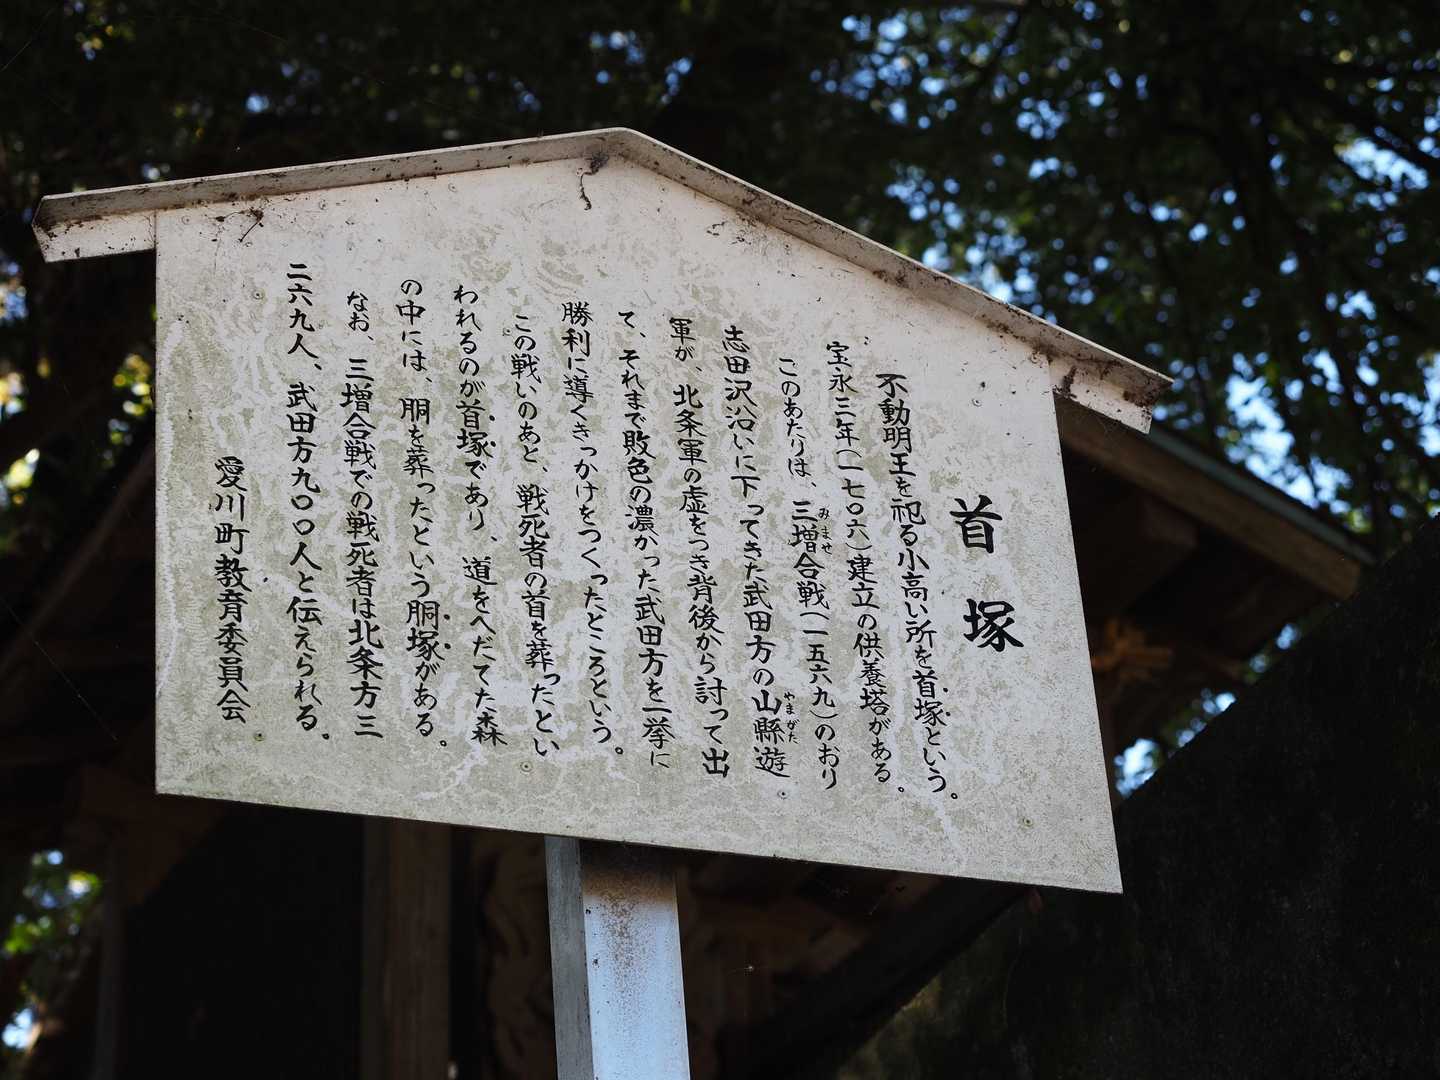 首塚
不動明王を祀る小高い所を首塚という。
宝永三年(一七〇六)建立の供養塔がある。
このあたりは、三増合戦(一五六九)のおり
みませ
志田沢沿いに下ってきた武田方の山縣遊
やまがた
軍が、北条軍の虚をつき背後から討って出
て、それまで敗色の濃かった武田方を一挙に
勝利に導くきっかけをつくったところという。
この戦いのあと、戦死者の首を葬ったとい
われるのが首塚であり、道をへだてた森
の中には、胴を葬ったという胴塚がある。
なお、三増合戦での戦死者は北条方三
二六九人、武田方九〇〇人と伝えられる。
愛川町教育委員会